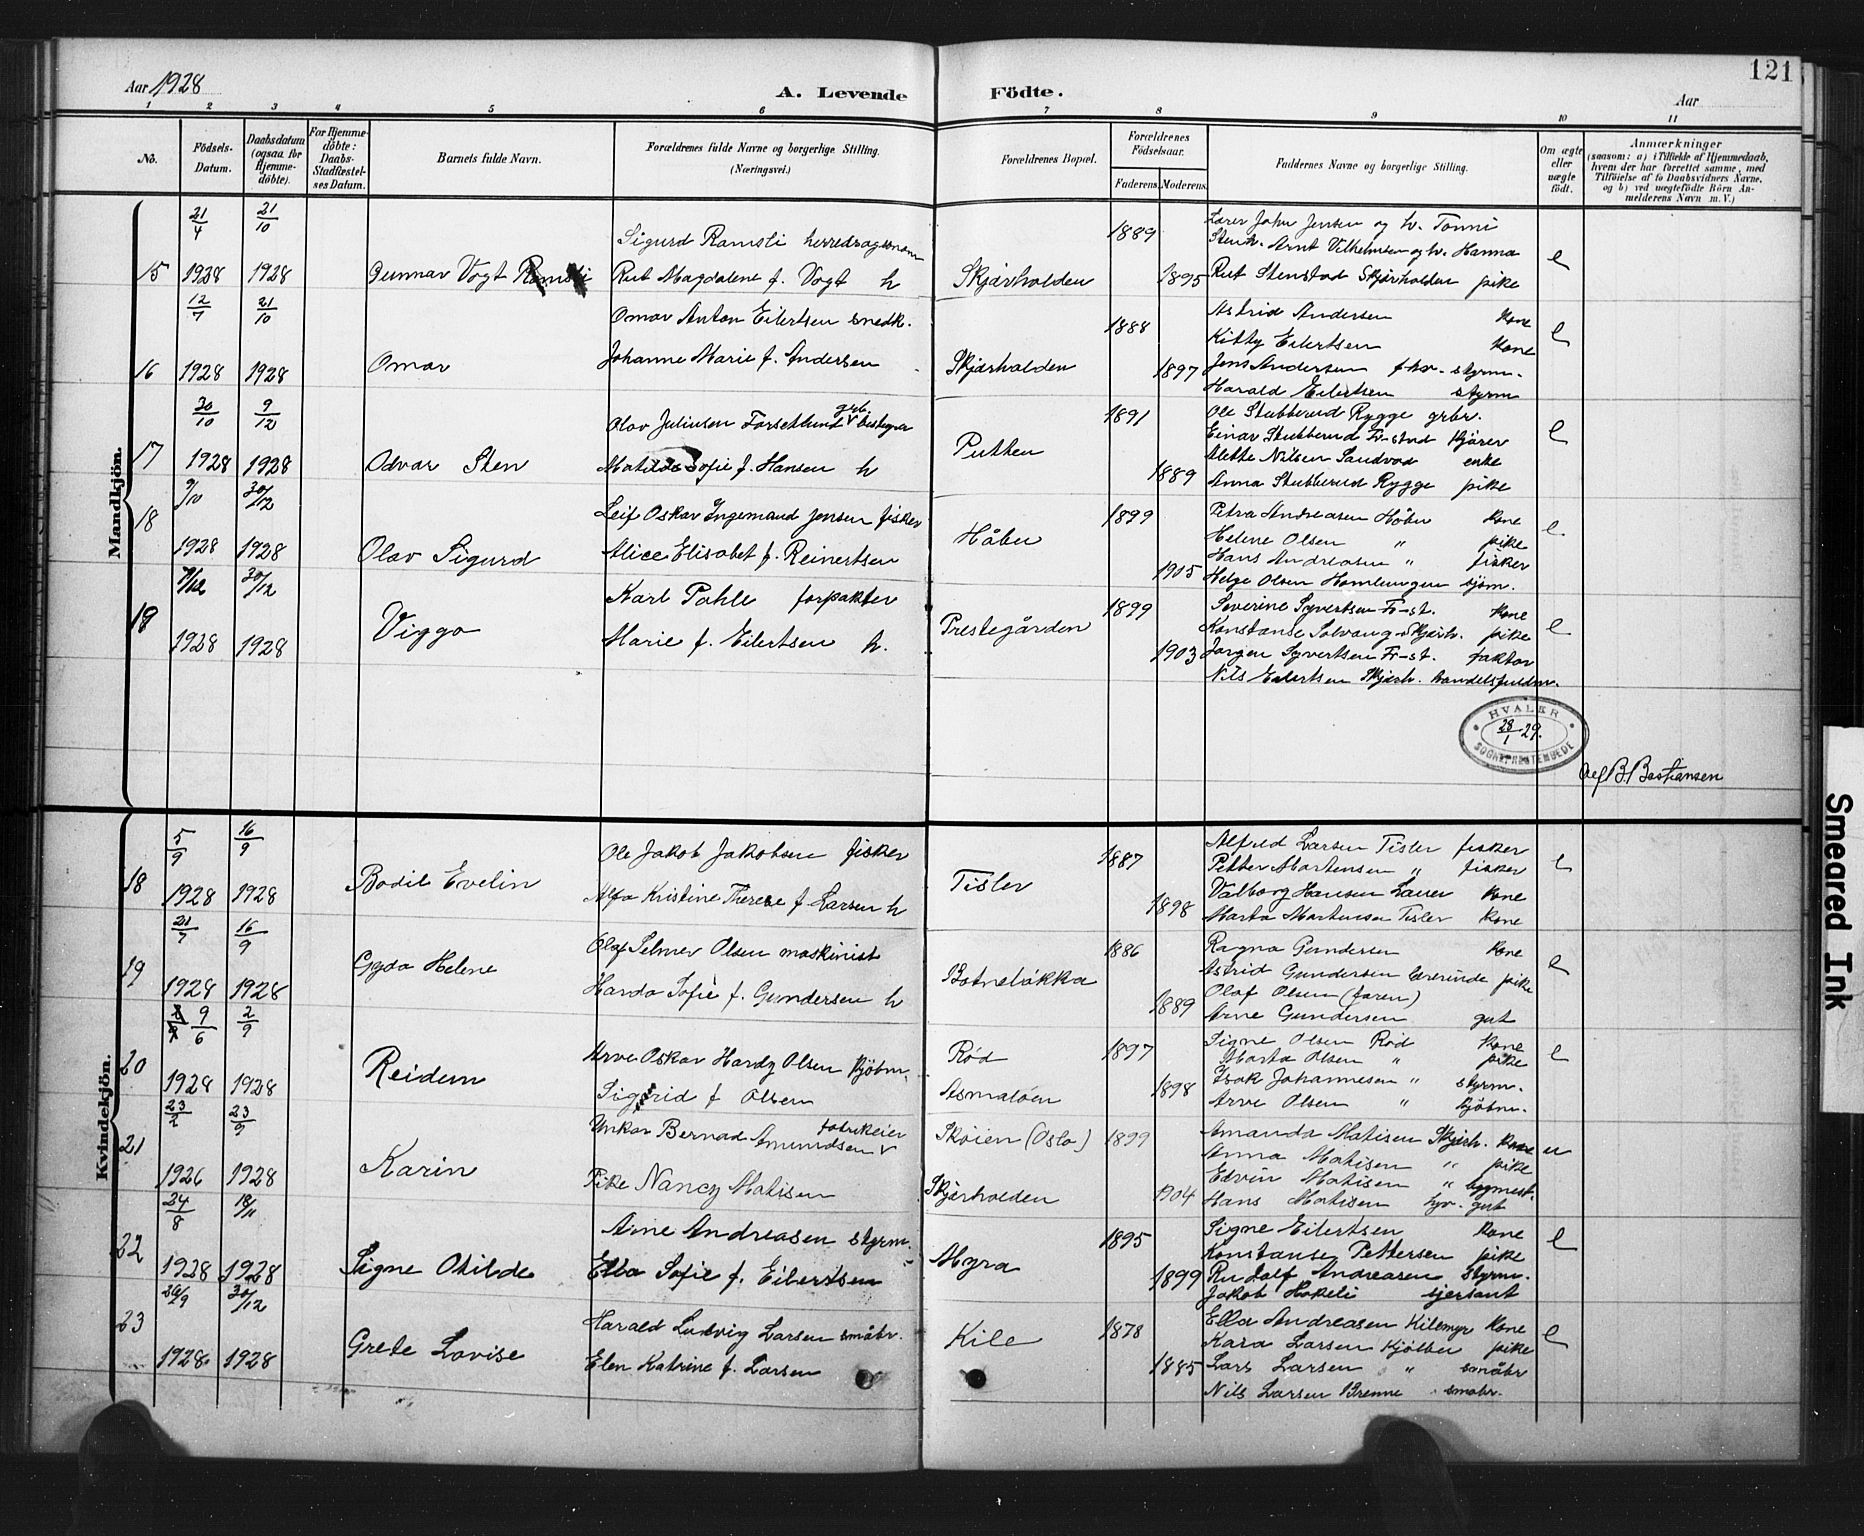 Aar 1928
A. Levende Födte.
121
Aar
1 2 3 4 5 6 7 8 9 10 11
No.
Födsels-Datum.
Daabsdatum (ogsaa for Hjemme-döbte).
For Hjemme-döbte: Daabs-Stadfæstel-ses Datum.
Barnets fulde Navn.
Forældrenes fulde Navne og borgerlige Stilling.
(Næringsvei.)
Forældrenes Bopæl.
Forældrenes Födselsaar.
Faderens. Moderens.
Faddernes Navne og borgerlige Stilling.
Om ægte eller uægte födt.
Anmærkninger
(saasom: a) i Tilfælde af Hjemmedaab, hvem der har forrettet samme, med Tilföielse af to Daabsvidners Navne, og b) ved uægtefödte Börn An-melderens Navn m. V.)
Mandkjön.
15 21/4 1928 21/10 1928 Gunnar Vogt Ramsli
Sigurd Ramsli herredragronom
Rut Magdalene f. Vogt h
Skjärhalden 1889 1895
Lærer John Jensen og h. Tonni
Stenh. Arnt Vilhelmsen og h. Hanna
Rut Stenstad Skjärhalden pike
e
16 12/7 1928 21/10 1928 Omar
Omar Anton Eilertsen snedk.
Johanne Marie f. Andersen
Skjärhalden 1888 1897
Astrid Andersen kone
Kitty Eilertsen kone
Jens Andersen fhv. styrm.
Harald Eilertsen styrm
e
17 30/10 1928 9/12 1928 Odvar Sten
Olav Juliusen Forsetlund grb. bestyrer
Matilde Sofie f. Hansen h
Putten 1891 1889
Ole Stubberud Rygge grbr.
Einar Stubberud Fr-stad kjører
Alette Nilsen Sandvad enke
Anna Stubberud Rygge pike
e
18 9/10 1928 30/12 1928 Olav Sigurd
Leif Oskar Ingemand Jensen fisker
Alice Elisabet f. Reinertsen
Håbu 1899 1905
Petra Andreasen Håbu kone
Helene Olsen " pike
Hans Andreasen " fisker
Helge Olsen Homlungen sjøm.
e
19 1928 30/12 1928 Viggo
Karl Pahle forpakter
Marie f. Eilertsen h.
Prestegården 1899 1903
Severine Syvertsen Fr-st. kone
Konstanse Solvang Skjärh. pike
Jørgen Syvertsen Fr-st. faktor
Nils Eilertsen Skjärh. handelsfuldm.
e
HVALER
28/1 29.
SOGNEPRESTEMBEDE
Alf B. Bastiansen
Kvindekjön.
18 5/9 1928 16/9 1928 Bodil Evelin
Ole Jakob Jakobsen fisker
Alfa Kristine Therese f Larsen h
Tisler 1887 1898
Alfred Larsen Tisler fisker
Petter Martensen " fisker
Valborg Hansen Lauer kone
Marta Martensen Tisler kone
e
19 21/7 1928 16/9 1928 Gyda Helene
Olaf Selmer Olsen maskinist
Harda Sofie f. Gundersen h
Botneløkka 1886 1889
Ragna Gundersen kone
Astrid Gundersen Lærerinde pike
Olaf Olsen (faren)
Arne Gundersen gut
e
20 9/6 1928 2/9 1928 Reidun
Arve Oskar Hardy Olsen kjøbm.
Sigrid f Olsen
Rød
Asmaløen 1897 1898
Signe Olsen Rød kone
Marta Olsen " pike
Isak Johannesen " styrm.
Arve Olsen " kjøbm.
e
21 23/2 1926 23/9 1928 Karin
Unkar Bernad Amundsen fabrikeier
Pike Nancy Matisen
Skøien (Oslo) 1899
Skjärhalden 1904
Amanda Matisen Skjärh. kone
Anna Matisen " pike
Edvin Matisen " bygmest.
Hans Matisen hyr. gut
u
22 24/8 1928 18/11 1928 Signe Otilde
Arne Andreasen styrm.
Ella Sofie f. Eilertsen
Myra 1895 1899
Signe Eilertsen kone
Konstanse Pettersen pike
Rudolf Andreasen styrm.
Jakob Hokeli sjersant
e
23 26/9 1928 30/12 1928 Grete Lovise
Harald Ludvig Larsen småbr.
Elen Katrine f. Larsen
Kile 1878 1885
Ella Andreasen Kilemyr kone
Kara Larsen Kjølbu pike
Lars Larsen " småbr
Nils Larsen Brenne småbr.
e
Smeared Ink